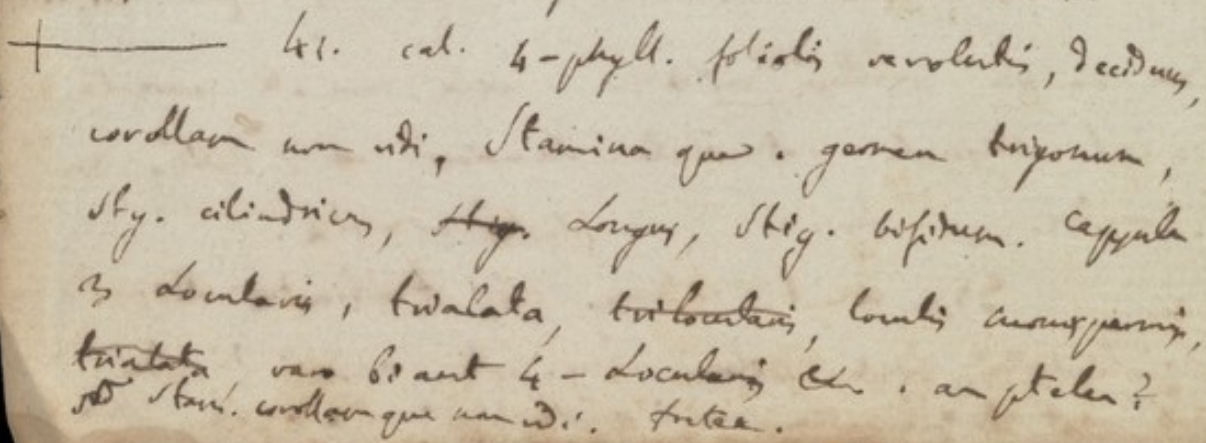 41. cal. 4-phyll. foliolis revolutis, deciduus,
corollam non vidi, Stamina que. germen trigonum,
Sty. cilindricus, Stig. Longus, Stig. bifidum. Cappula
3 Locularis, trialata, trilocularis, loculis monospermis,
trialata raro bi aut 4-Locularis &c. an ptelea?
sed Stam. corollamque non vidi. frutex.